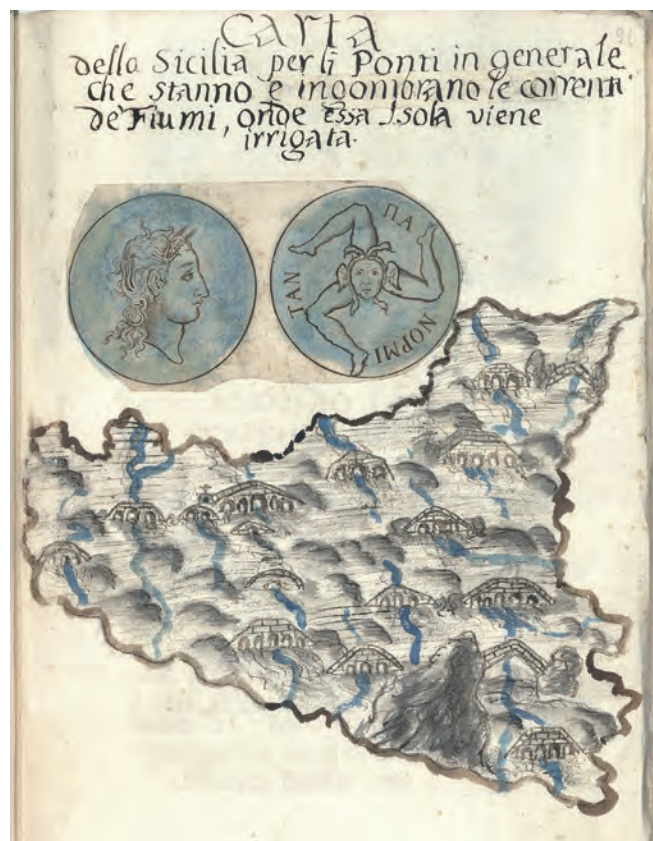 Carta
della Sicilia per li Ponti in generale
che stanno e ingombrano le correnti
de Fiumi, onde essa Isola viene
irrigata.
91
ΠΑ
ΝΟΡΜΙ
ΤΑΝ